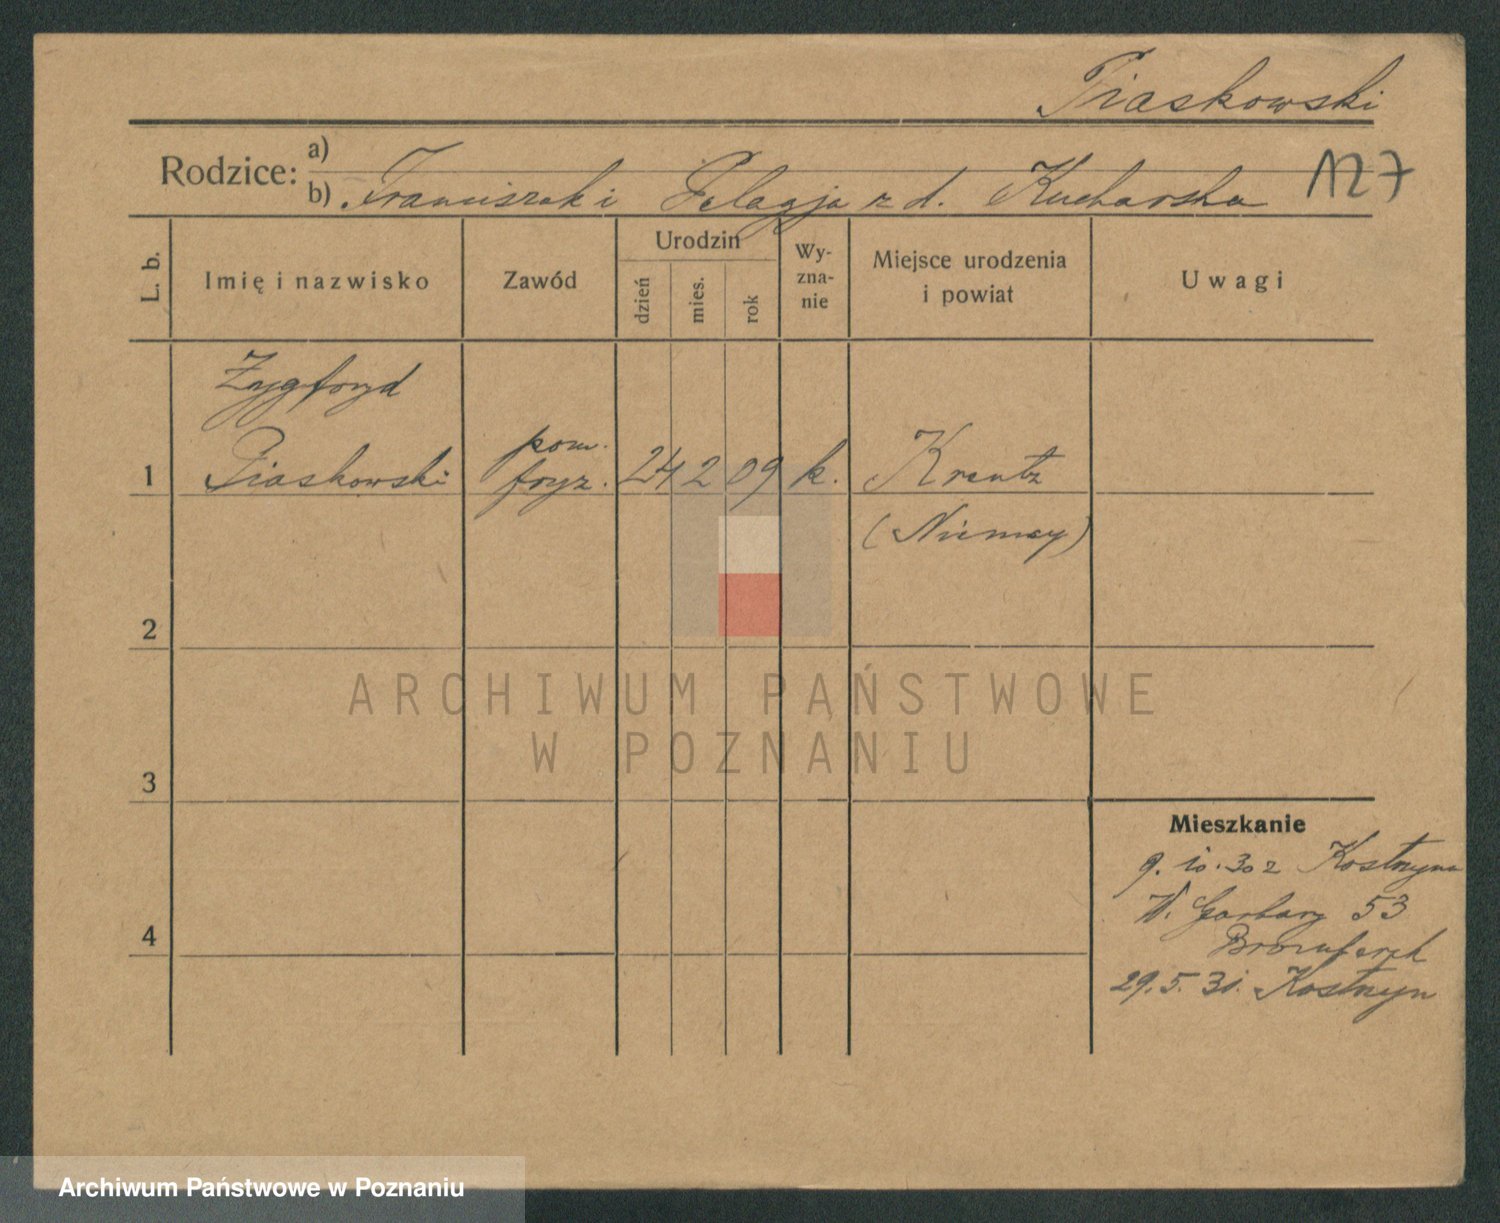 Piaskowski
Rodzice:
a)
b) Franciszek i Pelagja z d. Kucharska
127
L. b.
Imię i nazwisko
Zawód
Urodzin
dzień
mies.
rok
Wy-
zna-
nie
Miejsce urodzenia
i powiat
Uwagi
Zygfryd
1 Piaskowski
pom.
fryz.
24 2 09 k. Kreutz
(Niemcy)
2
3
4
Mieszkanie
9. 10. 30 z Kostrzyna
W. Garbary 53
29. 5. 31. Kostrzyn
ARCHIWUM PAŃSTWOWE
W POZNANIU
Archiwum Państwowe w Poznaniu